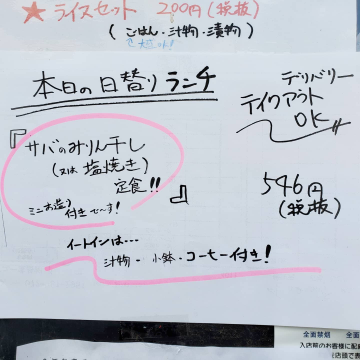 ★ ライスセット 200円(税抜)
(ごはん・汁物・漬物)
本日の日替りランチ
デリバリー
テイクアウト
OK
『サバのみりん干し
(又は 塩焼き)
定食!!
ミニお造り
付きでーす!』
546円
(税抜)
イートインは...
汁物・小鉢・コーヒー付き!
全面禁煙
入店前のお客様に配